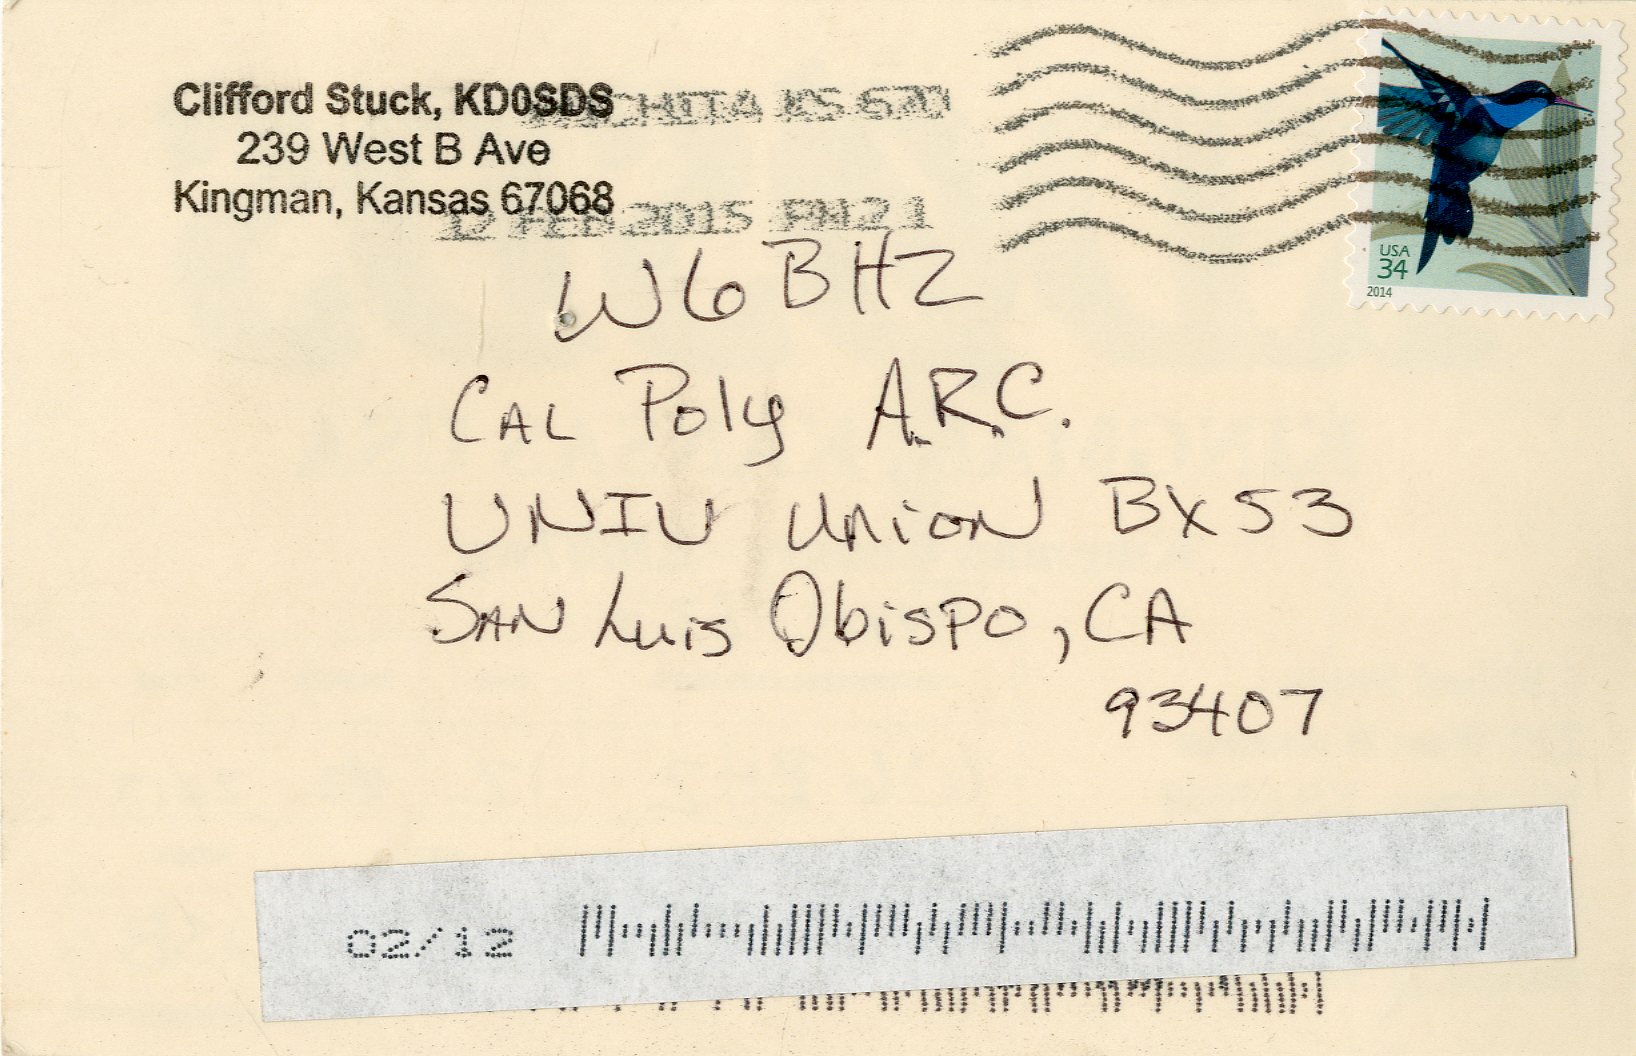 Clifford Stuck, KD0SDS
239 West B Ave
Kingman, Kansas 67068
WICHITA KS 670
12 FEB 2015 PM 2 1
USA
34
2014
W6BHZ
CAL Poly A.R.C.
UNIV Union BX 53
SAN Luis Obispo, CA
93407
02/12